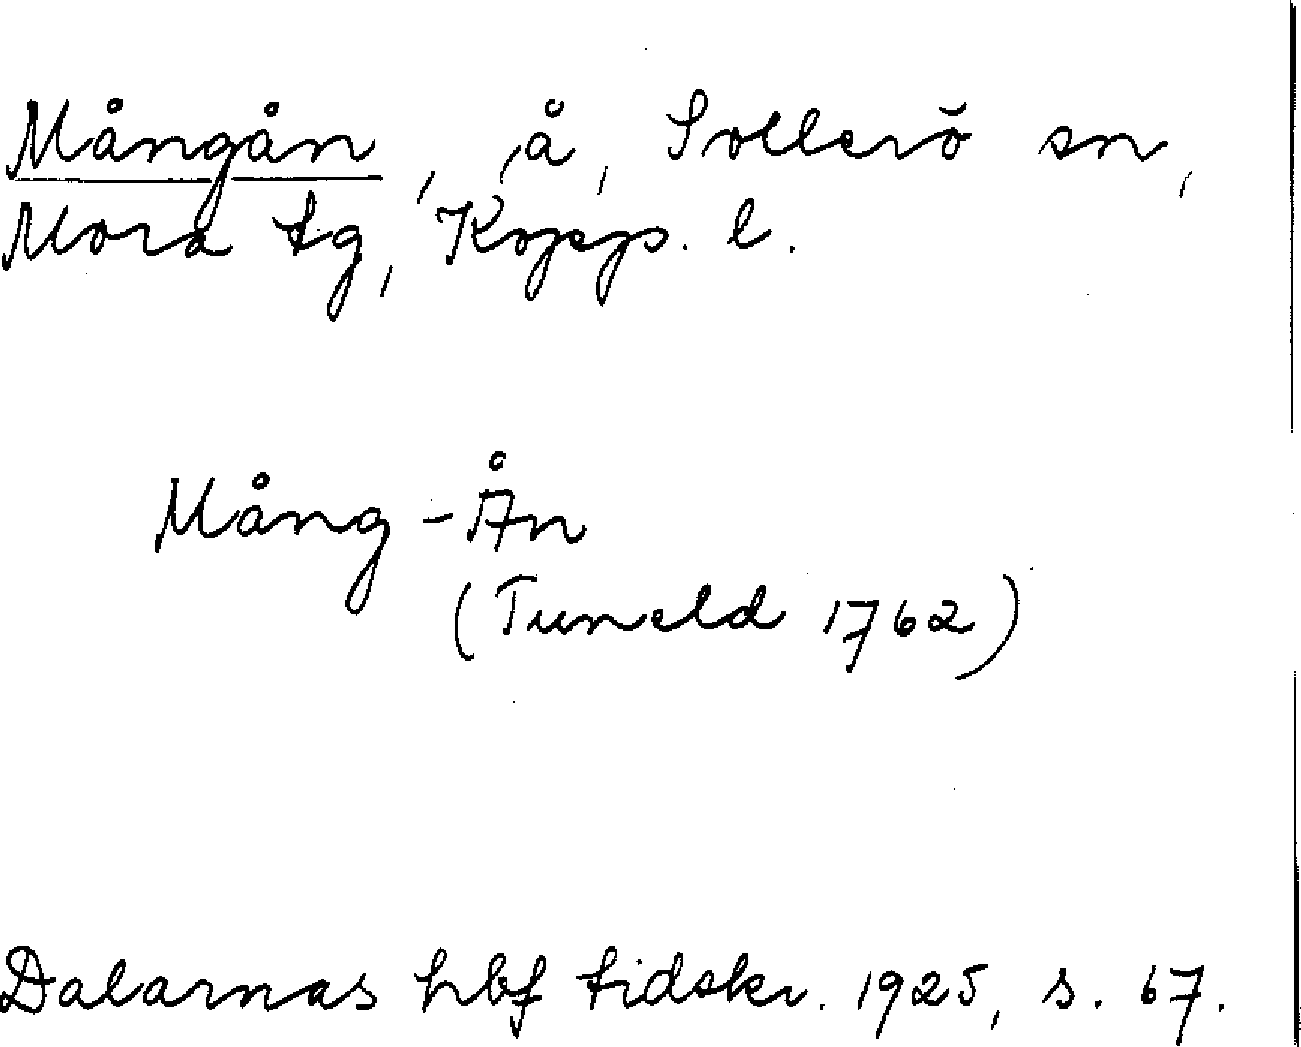 Mångån, å, Sollerö sn,
Mora tg, Kopps. l.
Mång-Ån
(Tuneld 1762)
Dalarnas hbf tidskr. 1925, s. 67.